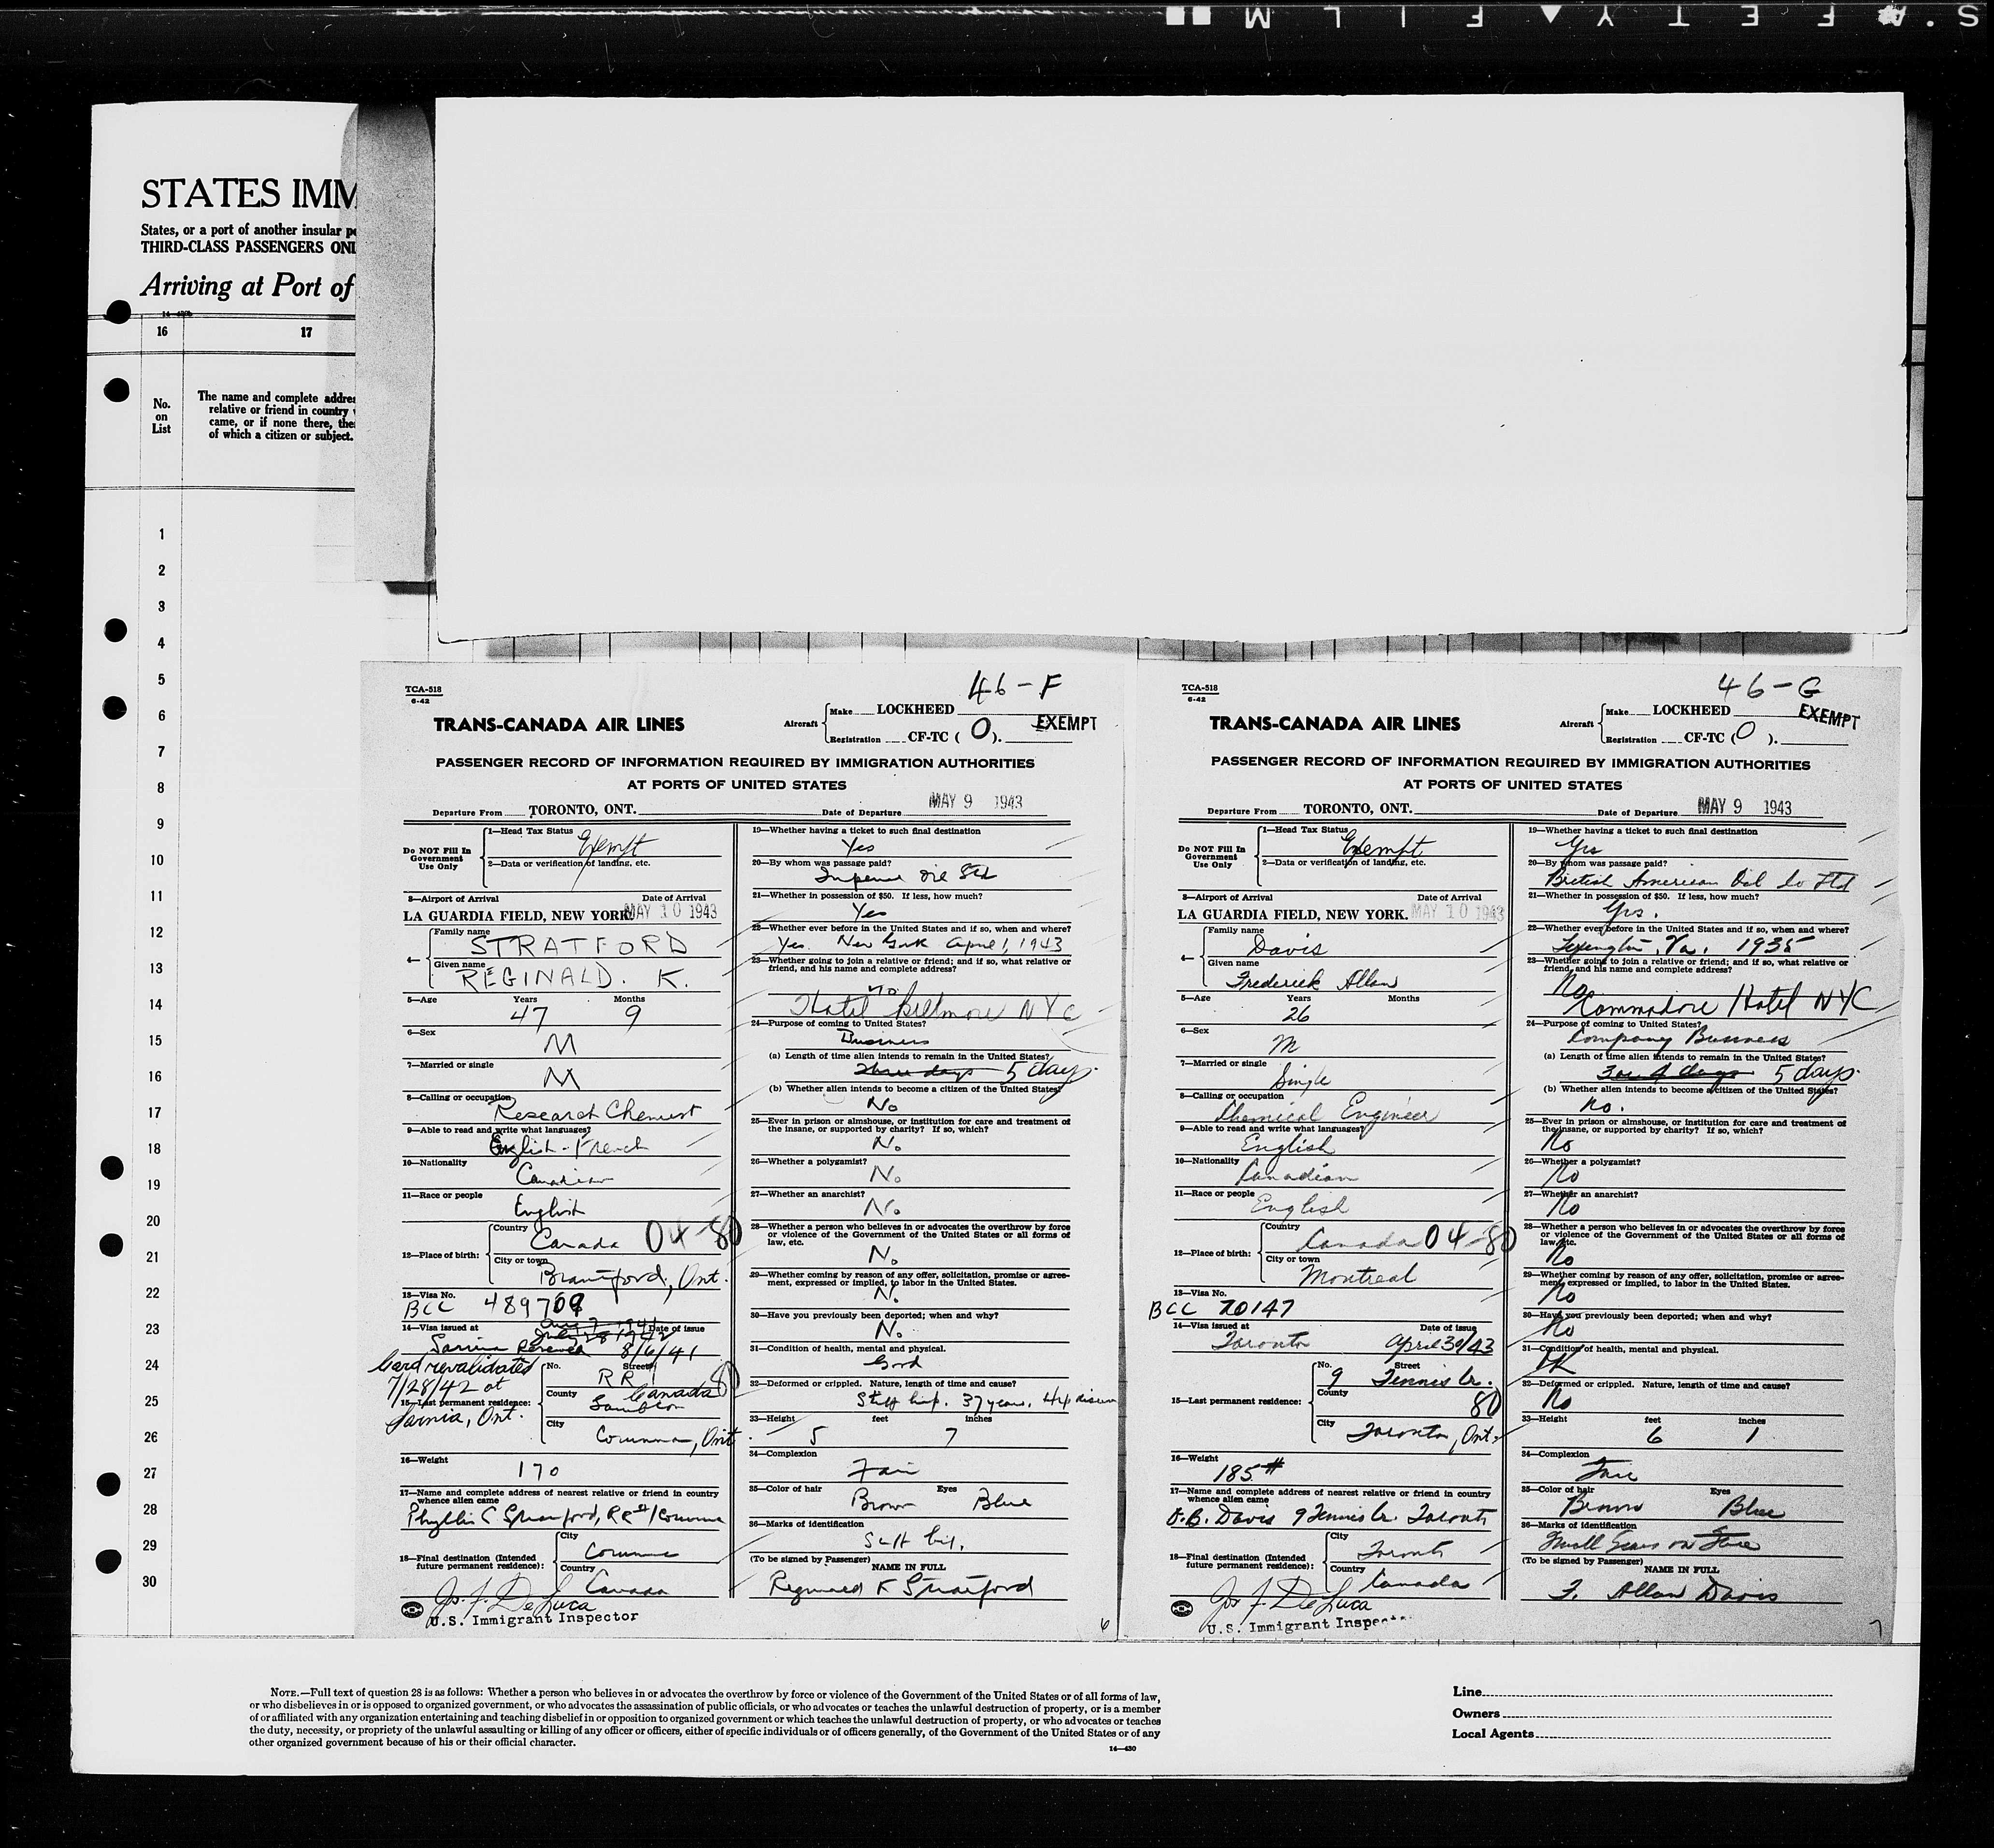 S.A F E T Y F I L M
STATES IMM
States, or a port of another insular
THIRD-CLASS PASSENGERS
Arriving at Port of
16 17
No. on List
The name and complete
relative or friend in country
came, or if none there,
of which a citizen or subject.
1
2
3
4
5
6
7
8
9
10
11
12
13
14
15
16
17
18
19
20
21
22
23
24
25
26
27
28
29
30
TCA-518
6-42
46-F
TRANS-CANADA AIR LINES
Aircraft
Make LOCKHEED
EXEMPT
Registration CF-TC ( O ).
PASSENGER RECORD OF INFORMATION REQUIRED BY IMMIGRATION AUTHORITIES
AT PORTS OF UNITED STATES
Departure From TORONTO, ONT. Date of Departure MAY 9 1943
Do NOT Fill In Government Use Only
1—Head Tax Status Exempt
2—Data or verification of landing, etc.
3—Airport of Arrival Date of Arrival
LA GUARDIA FIELD, NEW YORK. MAY 10 1943
4—
Family name STRATFORD
Given name REGINALD. K.
5—Age Years 47 Months 9
6—Sex M
7—Married or single M
8—Calling or occupation Research Chemist
9—Able to read and write what languages?
English - French
10—Nationality Canadian
11—Race or people English
12—Place of birth: Country Canada 04-80
City or town Brantford, Ont.
13—Visa No.
BCC 489709
14—Visa issued at Date of issue
Sarnia Renewed 8/6/41
Card revalidated
7/28/42 at
Sarnia, Ont.
15—Last permanent residence:
No. Street RR 1
County Lambton Canada 80
City Corunna, Ont.
16—Weight 170
17—Name and complete address of nearest relative or friend in country
whence alien came
Phyllis C Stratford, RR #1 Corunna
18—Final destination (Intended
future permanent residence):
City Corunna
Country Canada
Jos. J. De Luca
U.S. Immigrant Inspector
19—Whether having a ticket to such final destination
Yes
20—By whom was passage paid?
Imperial Oil Ltd
21—Whether in possession of $50. If less, how much?
Yes
22—Whether ever before in the United States and if so, when and where?
Yes. New York April 1, 1943
23—Whether going to join a relative or friend; and if so, what relative or
friend, and his name and complete address?
no
Hotel Biltmore NYC
24—Purpose of coming to United States?
Business
(a) Length of time alien intends to remain in the United States?
Three days 5 days.
(b) Whether alien intends to become a citizen of the United States?
No
25—Ever in prison or almshouse, or institution for care and treatment of
the insane, or supported by charity? If so, which?
No
26—Whether a polygamist?
No
27—Whether an anarchist?
No
28—Whether a person who believes in or advocates the overthrow by force
or violence of the Government of the United States or all forms of
law, etc.
No
29—Whether coming by reason of any offer, solicitation, promise or agree-
ment, expressed or implied, to labor in the United States.
No
30—Have you previously been deported; when and why?
No
31—Condition of health, mental and physical.
Good
32—Deformed or crippled. Nature, length of time and cause?
Stiff hip. 37 years. Hip
33—Height feet 5 inches 7
34—Complexion
Fair
35—Color of hair Brown Eyes Blue
36—Marks of identification
Stiff hip.
(To be signed by Passenger) NAME IN FULL
Reginald K Stratford
6
TCA-518
6-42
46-G
TRANS-CANADA AIR LINES
Aircraft
Make LOCKHEED
EXEMPT
Registration CF-TC ( O ).
PASSENGER RECORD OF INFORMATION REQUIRED BY IMMIGRATION AUTHORITIES
AT PORTS OF UNITED STATES
Departure From TORONTO, ONT. Date of Departure MAY 9 1943
Do NOT Fill In Government Use Only
1—Head Tax Status Exempt
2—Data or verification of landing, etc.
3—Airport of Arrival Date of Arrival
LA GUARDIA FIELD, NEW YORK. MAY 10 1943
4—
Family name Davis
Given name Frederick Allan
5—Age Years 26 Months
6—Sex M
7—Married or single Single
8—Calling or occupation Chemical Engineer
9—Able to read and write what languages?
English
10—Nationality Canadian
11—Race or people English
12—Place of birth: Country Canada 04-80
City or town Montreal
13—Visa No.
BCC 20147
14—Visa issued at Date of issue
Toronto April 30/43
15—Last permanent residence:
No. 9 Street Tennis Cr.
County 80
City Toronto, Ont.
16—Weight 185 #
17—Name and complete address of nearest relative or friend in country
whence alien came
O.B. Davis 9 Tennis Cr. Toronto
18—Final destination (Intended
future permanent residence):
City Toronto
Country Canada
Jos. J. De Luca
U.S. Immigrant Inspector
19—Whether having a ticket to such final destination
Yes
20—By whom was passage paid?
British American Oil Co Ltd
21—Whether in possession of $50. If less, how much?
Yes.
22—Whether ever before in the United States and if so, when and where?
Lexington, Va. 1935
23—Whether going to join a relative or friend; and if so, what relative or
friend, and his name and complete address?
No
Commodore Hotel NYC
24—Purpose of coming to United States?
Company Business
(a) Length of time alien intends to remain in the United States?
3 or 4 days 5 days.
(b) Whether alien intends to become a citizen of the United States?
no.
25—Ever in prison or almshouse, or institution for care and treatment of
the insane, or supported by charity? If so, which?
No
26—Whether a polygamist?
No
27—Whether an anarchist?
No
28—Whether a person who believes in or advocates the overthrow by force
or violence of the Government of the United States or all forms of
law, etc.
No
29—Whether coming by reason of any offer, solicitation, promise or agree-
ment, expressed or implied, to labor in the United States.
No
30—Have you previously been deported; when and why?
No
31—Condition of health, mental and physical.
OK
32—Deformed or crippled. Nature, length of time and cause?
No
33—Height feet 6 inches 1
34—Complexion
Fair
35—Color of hair Brown Eyes Blue
36—Marks of identification
Small Scars on Face
(To be signed by Passenger) NAME IN FULL
F. Allan Davis
7
NOTE.—Full text of question 28 is as follows: Whether a person who believes in or advocates the overthrow by force or violence of the Government of the United States or of all forms of law,
or who disbelieves in or is opposed to organized government, or who advocates the assassination of public officials, or who advocates or teaches the unlawful destruction of property, or is a member
of or affiliated with any organization entertaining and teaching disbelief in or opposition to organized government or which teaches the unlawful destruction of property, or who advocates or teaches
the duty, necessity, or propriety of the unlawful assaulting or killing of any officer or officers, either of specific individuals or of officers generally, of the Government of the United States or of any
other organized government because of his or their official character.
14—430
Line
Owners
Local Agents